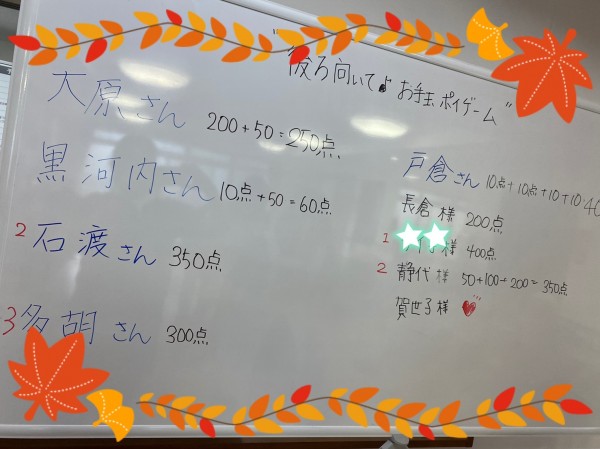 "後ろ向いてよ お手玉ポイゲーム"
大原さん 200+50=250点
黒河内さん 10点+50=60点
2 石渡さん 350点
3 多胡さん 300点
戸倉さん 10点+10点+10+10=40
長倉様 200点
1 様 400点
2 静代様 50+100+200=350点
賀世子様